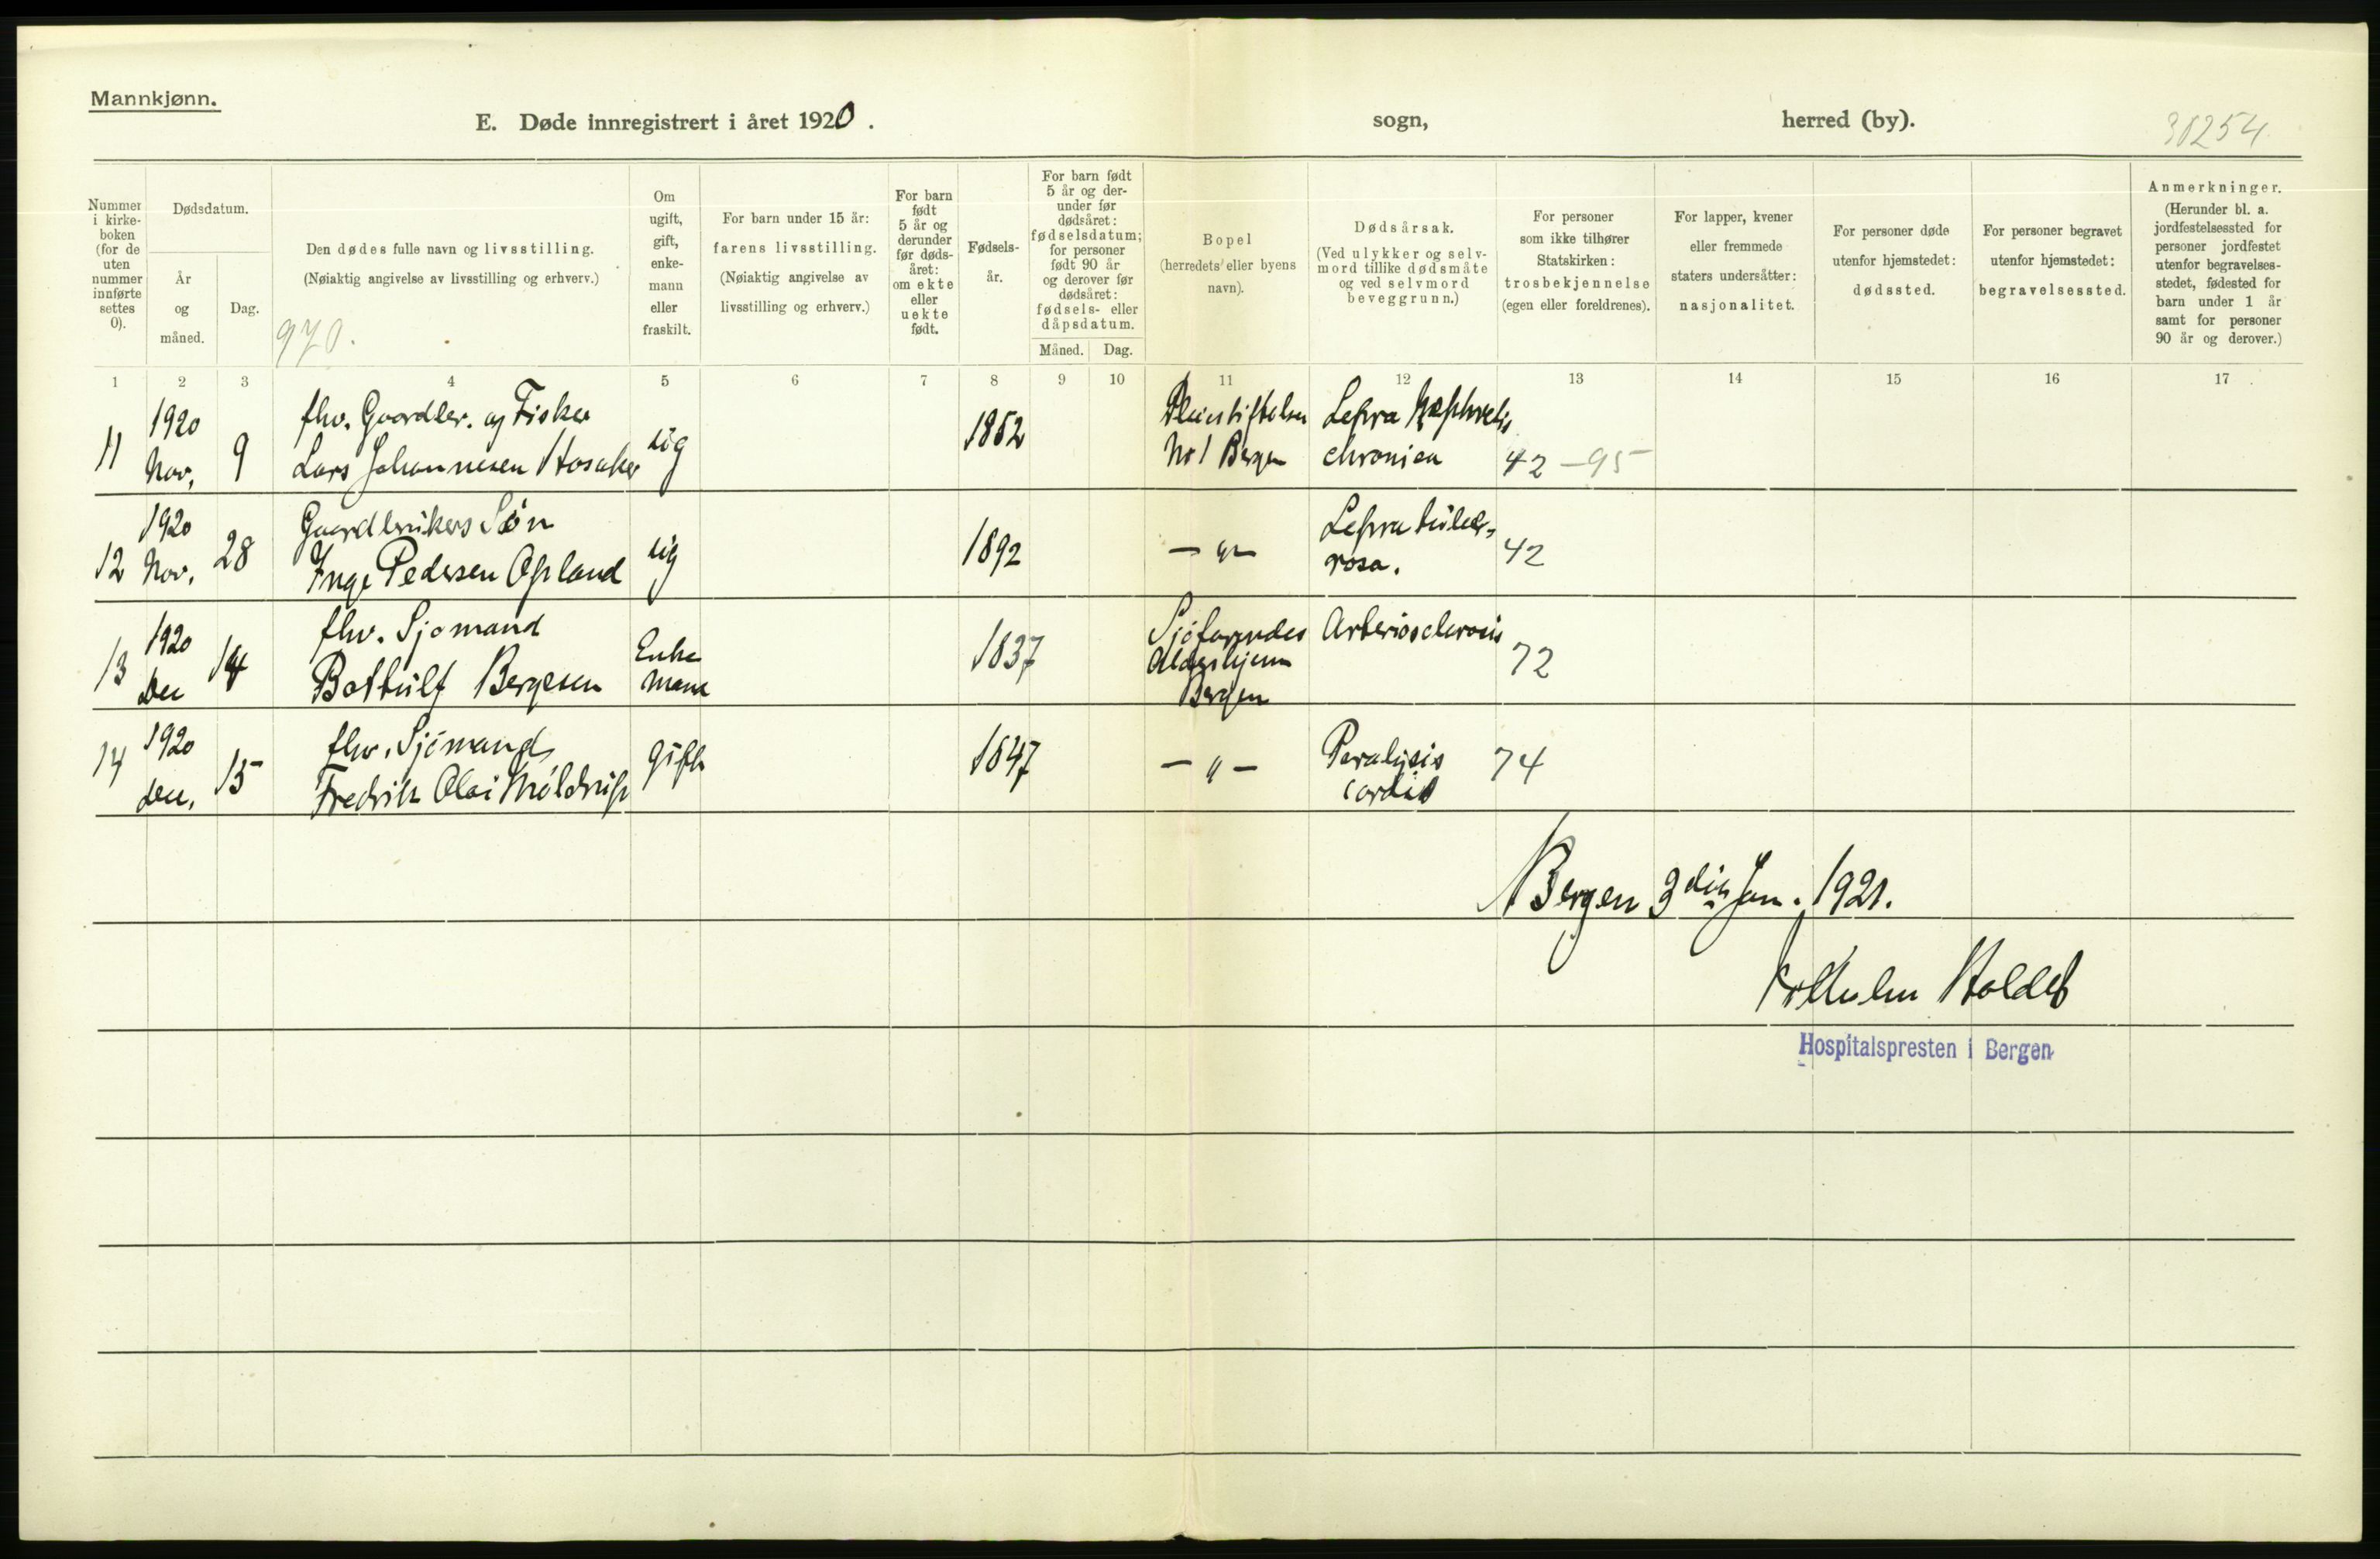 Mannkjønn.
E. Døde innregistrert i året 1920. sogn, herred (by).
30254
Nummer i kirke- boken (for de uten nummer innførte settes 0).
Dødsdatum.
År og måned.
Dag.
Den dødes fulle navn og livsstilling.
(Nøiaktig angivelse av livsstilling og erhverv.)
970.
Om ugift, gift, enke- mann eller fraskilt.
For barn under 15 år:
farens livsstilling.
(Nøiaktig angivelse av livsstilling og erhverv.)
For barn født 5 år og derunder før døds- året: om ekte eller uekte født.
Fødsels- år.
For barn født 5 år og der- under før dødsåret: fødselsdatum; for personer født 90 år og derover før dødsåret: fødsels- eller dåpsdatum.
Måned. Dag.
Bopel
(herredets eller byens navn).
Dødsårsak.
(Ved ulykker og selv- mord tillike dødsmåte og ved selvmord beveggrunn.)
For personer som ikke tilhører Statskirken: trosbekjennelse (egen eller foreldrenes).
For lapper, kvener eller fremmede staters undersåtter: nasjonalitet.
For personer døde utenfor hjemstedet: dødssted.
For personer begravet utenfor hjemstedet: begravelsessted.
Anmerkninger.
(Herunder bl. a. jordfestelsessted for personer jordfestet utenfor begravelses- stedet, fødested for barn under 1 år samt for personer 90 år og derover.)
1 2 3 4 5 6 7 8 9 10 11 12 13 14 15 16 17
11 1920 Nov. 9 fhv. Gaardbr. og Fisker
Lars Johannesen ug 1852 Pleiestiftelsen No 1 Bergen Lepra Nephritis chronica 42 - 95
12 1920 Nov. 28 Gaardbrukers Søn
Inge Pedersen Opland ug 1892 - " - Lepra tuberosa. 42
13 1920 Dec 14 fhv. Sjømand
Bothulf Bergesen Enkemand 1837 Sjøfarendes Aldershjem Bergen Arteriosclerosis 72
14 1920 Dec. 15 fhv. Sjømand
Fredrik Olai Møldrup gift 1847 - " - Paralysis cordis 74
Bergen 3die Jan. 1921.
Hospitalspresten i Bergen